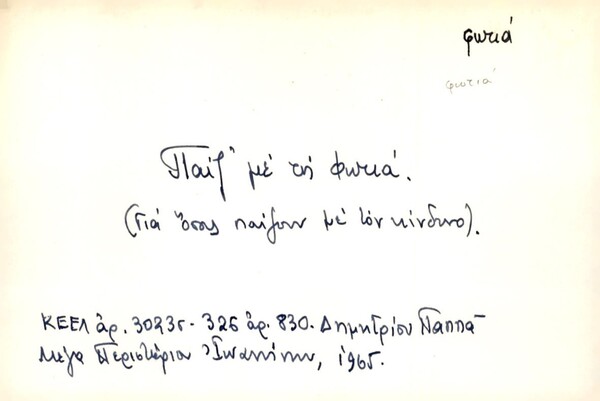 φωτιά
φωτιά
Παίζ' μέ τή φωτιά.
(Γιά ὅσους παίζουν μέ τόν κίνδυνο).
ΚΕΕΛ ἀρ. 3023 σ. 326 ἀρ. 830. Δημητρίου Παππᾶ
Μέγα Περιστέριον Ἰωαννίνων, 1965.